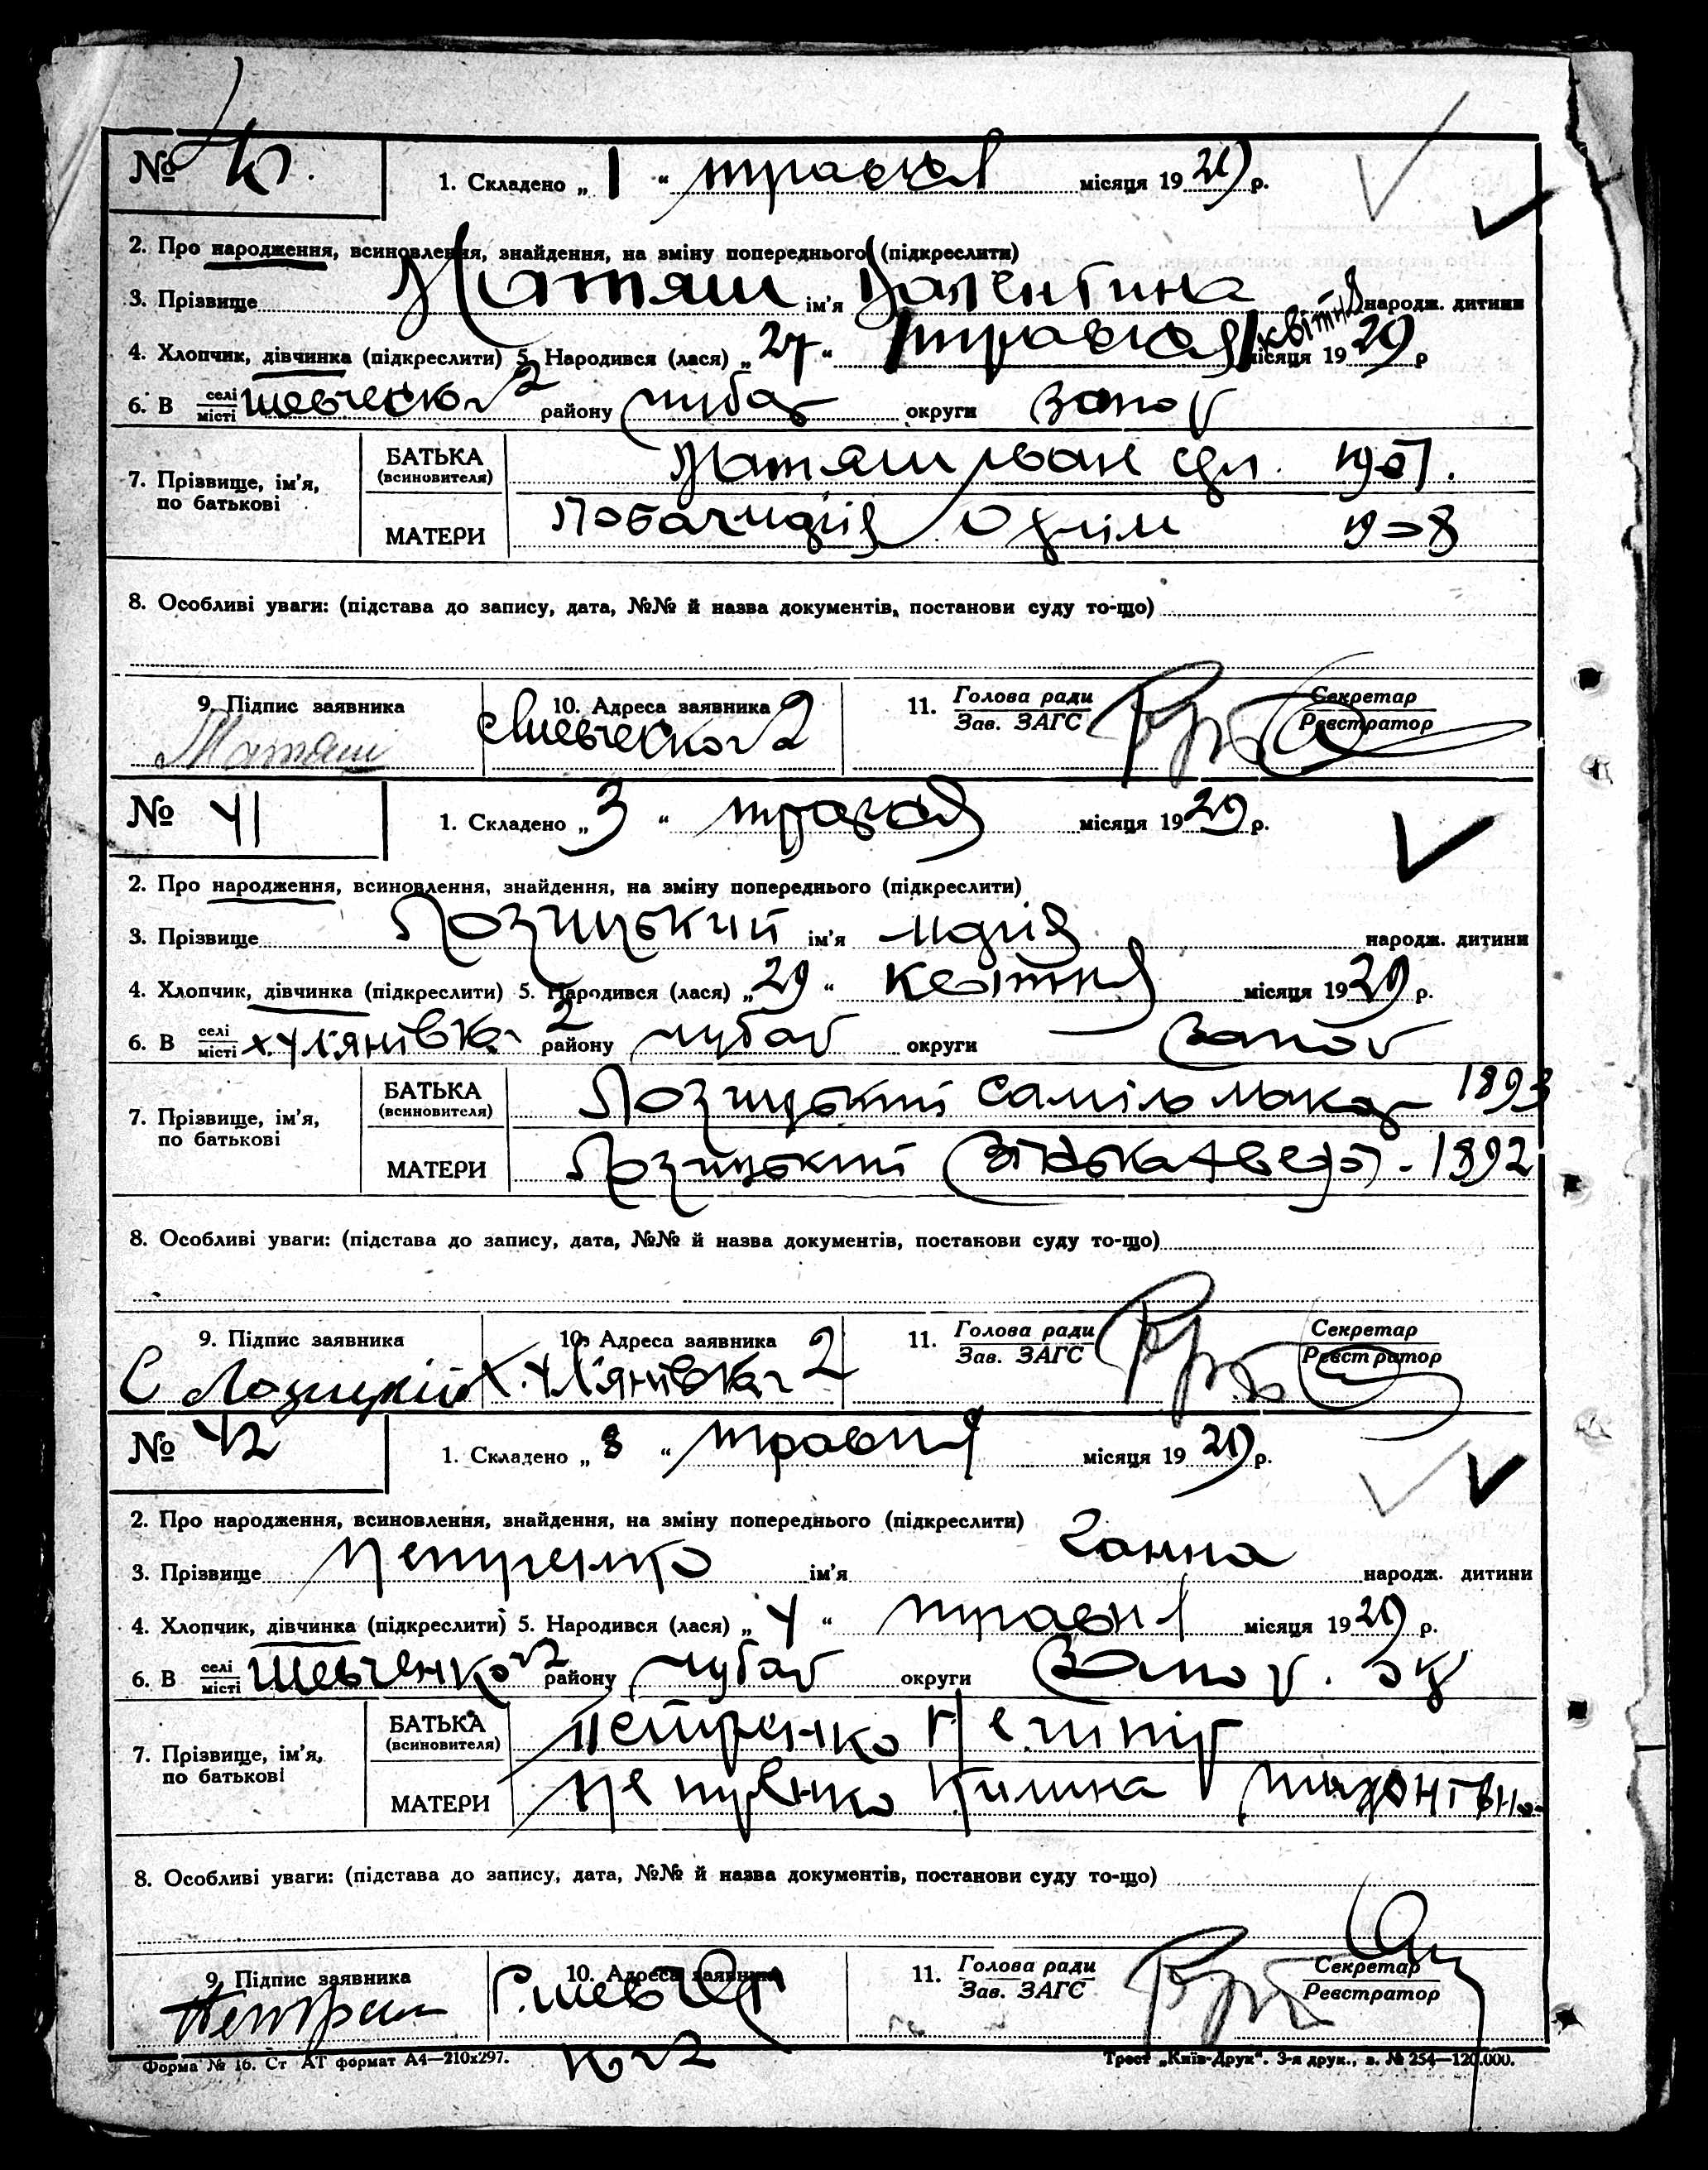 № 40.
1. Складено „ 1 “ травня місяця 1929 р.
2. Про народження, всиновлення, знайдення, на зміну попереднього (підкреслити)
3. Прізвище Матяш ім'я Валентина народж. дитини
квітня
4. Хлопчик, дівчинка (підкреслити) 5. Народився (лася) „ 27 “ травня місяця 1929 р
6. В селі/місті району округи Запор
БАТЬКА (всиновителя) Матяш Іван 1907.
7. Прізвище, ім'я, по батькові
МАТЕРИ 1908
8. Особливі уваги: (підстава до запису, дата, №№ й назва документів, постанови суду то-що)
9. Підпис заявника 10. Адреса заявника 11. Голова ради/Зав. ЗАГС Секретар/Реєстратор
Матяш
№ 41
1. Складено „ 3 “ травня місяця 1929 р.
2. Про народження, всиновлення, знайдення, на зміну попереднього (підкреслити)
3. Прізвище Лозицький ім'я Марія народж. дитини
4. Хлопчик, дівчинка (підкреслити) 5. Народився (лася) „ 29 “ квітня місяця 1929 р.
6. В селі/місті х. Улянівка 2 району чубар округи Запор
БАТЬКА (всиновителя) Лозицький Саміло Макар 1893
7. Прізвище, ім'я, по батькові
МАТЕРИ Лозицький 1892
8. Особливі уваги: (підстава до запису, дата, №№ й назва документів, постанови суду то-що)
9. Підпис заявника 10. Адреса заявника 11. Голова ради/Зав. ЗАГС Секретар/Реєстратор
С Лозицкий х. Улянівка 2
№ 42
1. Складено „ 8 “ травня місяця 1929 р.
2. Про народження, всиновлення, знайдення, на зміну попереднього (підкреслити)
3. Прізвище Петренко ім'я Ганна народж. дитини
4. Хлопчик, дівчинка (підкреслити) 5. Народився (лася) „ 4 “ травня місяця 1929 р.
6. В селі/місті Шевченко №2 району чубар округи Запор. ок
БАТЬКА (всиновителя) Петренко Нечипір
7. Прізвище, ім'я, по батькові
МАТЕРИ Петренко Килина
8. Особливі уваги: (підстава до запису, дата, №№ й назва документів, постанови суду то-що)
9. Підпис заявника 10. Адреса заявника 11. Голова ради/Зав. ЗАГС Секретар/Реєстратор
Форма № 16. Ст АТ формат А4—210х297.
Трест „Київ-Друк“. 3-я друк., з. № 254—120.000.